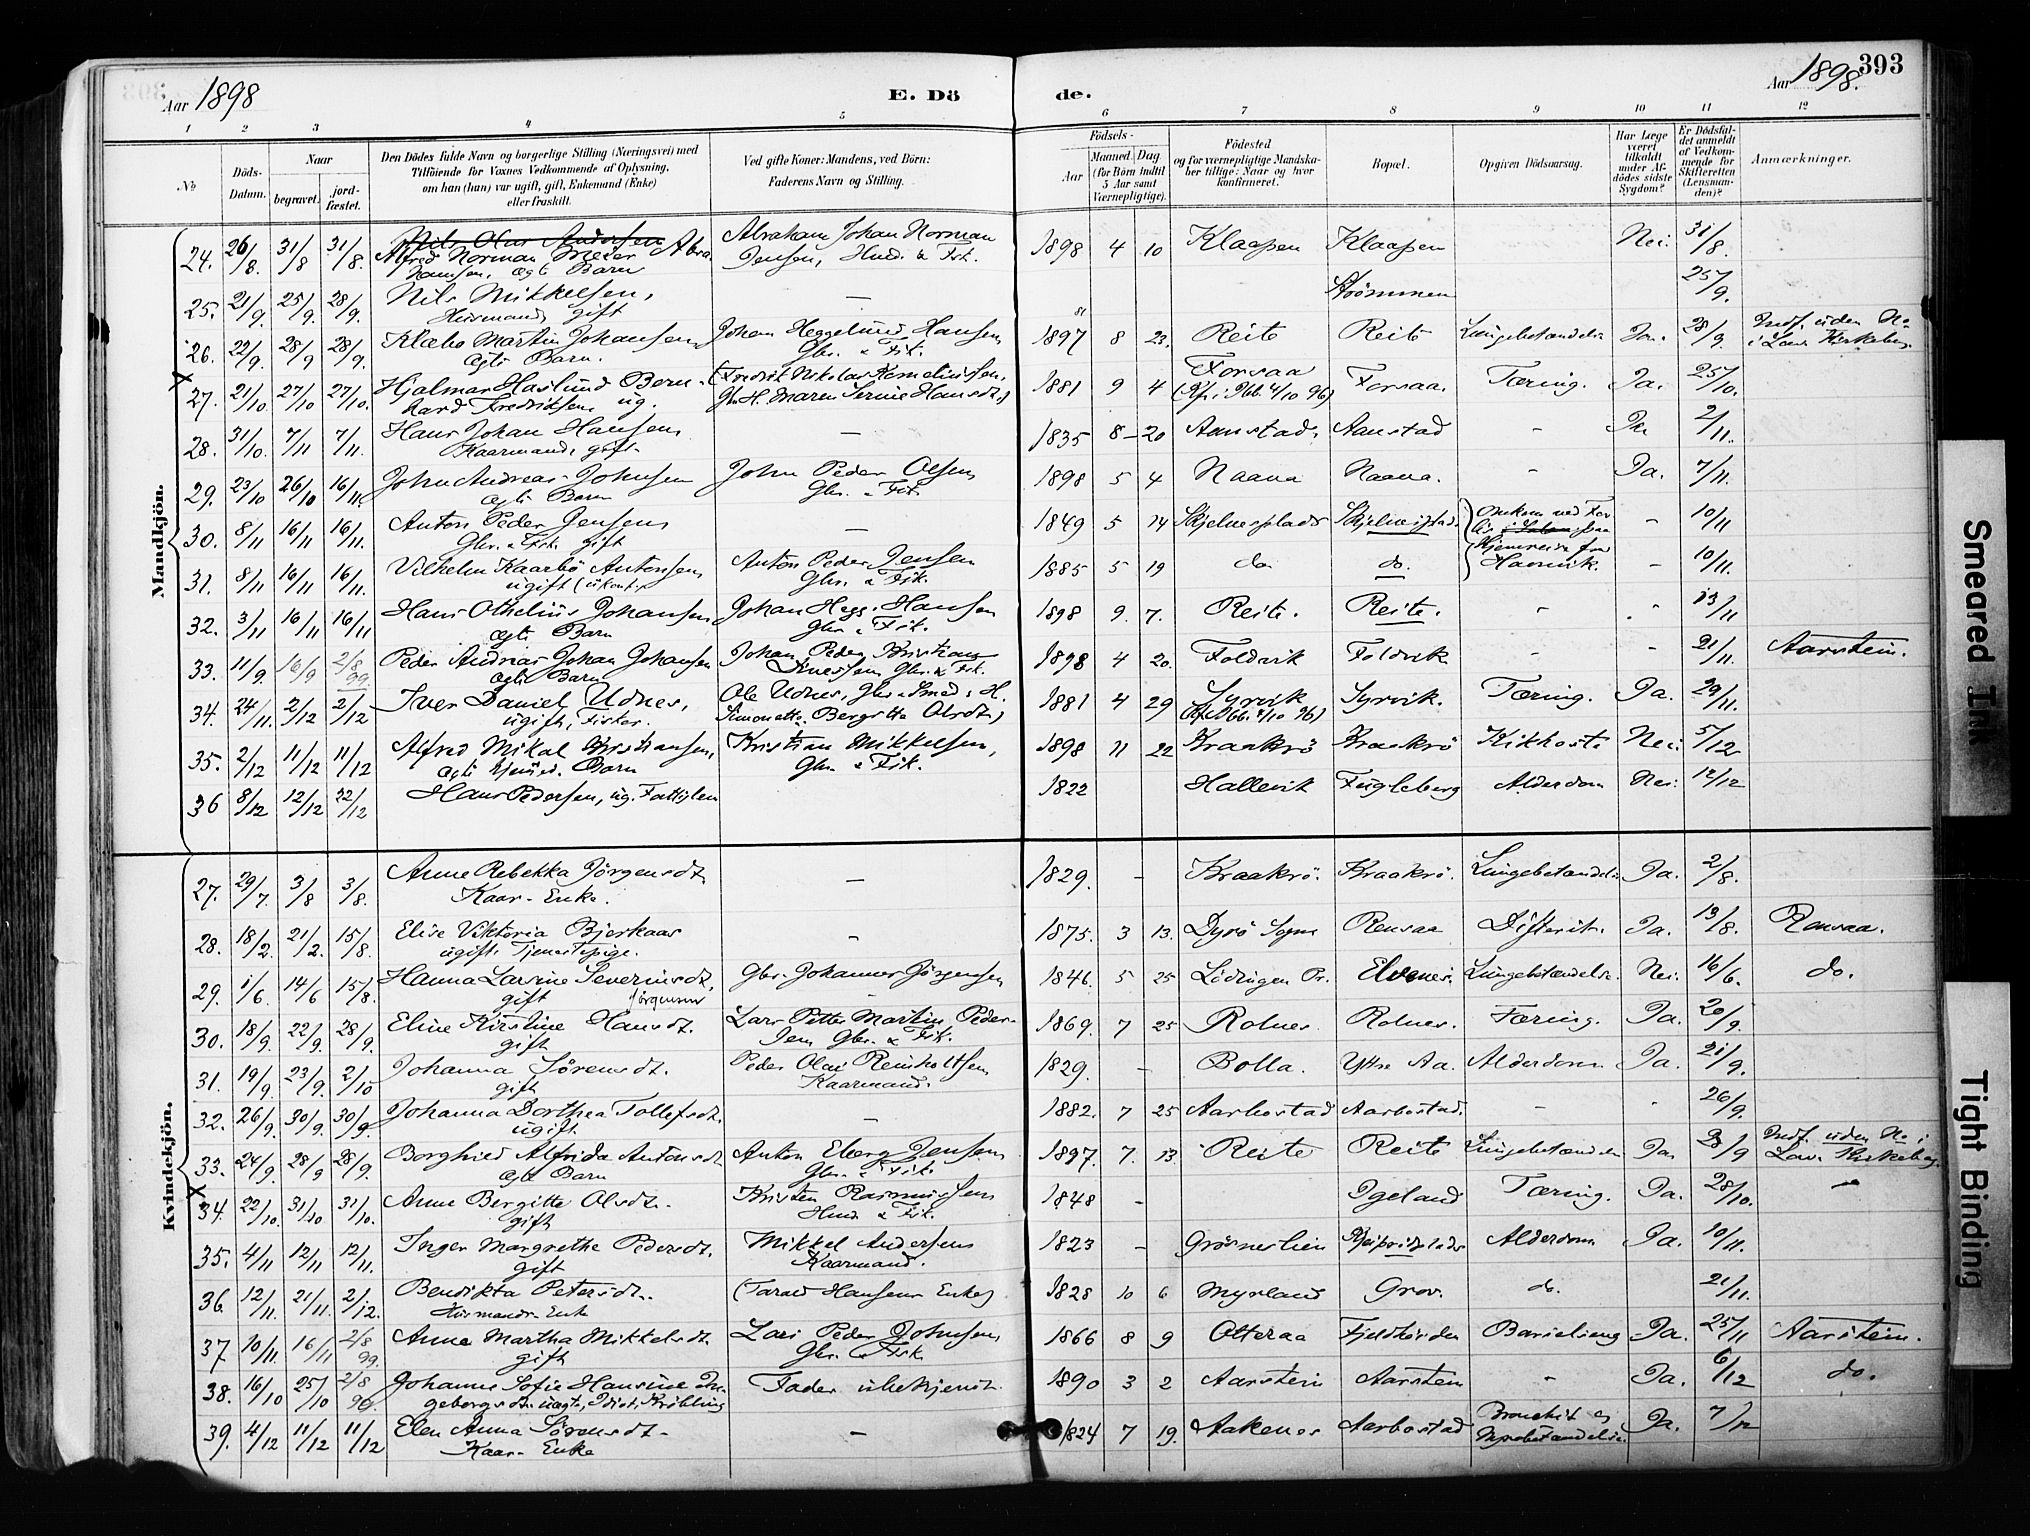 393
Aar 1898
E. Dö
de.
Aar 1898.
1 2 3 4 5 6 7 8 9 10 11 12
No
Döds-Datum.
Naar
begravet.
jord-fæstet.
Den Dödes fulde Navn og borgerlige Stilling (Næringsvei) med
Tilföiende for Voxnes Vedkommende af Oplysning,
om han (hun) var ugift, gift, Enkemand (Enke)
eller fraskilt.
Ved gifte Koner: Mandens, ved Börn:
Faderens Navn og Stilling.
Födsels-
Aar
Maaned Dag
(for Börn indtil
5 Aar samt
Værnepligtige).
Födested
og for værnepligtige Mandska-
ber tillige: Naar og hvor
konfirmeret.
Bopæl.
Opgiven Dödsaarsag.
Har Læge
været
tilkaldt
under Af-
dödes sidste
Sygdom?
Er Dödsfal-
det anmeldt
af Vedkom-
mende for
Skifteretten
(Lensman-
den)?
Anmærkninger.
Mandkjön.
24. 26/8. 31/8 31/8. Nils Olus Andersen Alfred Norman Meier Abra-hamsen, ægte Barn Abraham Johan Norman Jensen, Husm. & Fisk. 1898 4 10 Klaapen Klaapen Nei. 31/8.
25. 21/9. 25/9. 28/9. Nils Mikkelsen, Husmand, gift — Strömmen 25/9.
26. 22/9. 28/9 28/9. Klæbo Martin Johansen ægte Barn. Johan Heggelund Hansen Gbr. & Fisk. 1897 8 23. Reite Reite Lungebetændelse Ja. 28/9. Indf. uden No i Lavangs Kirkebog.
X
27. 21/10. 27/10 27/10. Hjalmar Haslund Bern-hard Fredriksen ug. (Fredrik Nikolai Kornelinssen, Gbr. H. Maren Serine Hansdt.) 1881 9 4 Forsaa (Kfr. i Ibb. 4/10 96) Forsaa. Tæring. Ja. 25/10.
28. 31/10. 7/11 7/11. Hans Johan Hansen Kaarmand, gift. — 1835 8 — 20 Aanstad. Aanstad - Ja 2/11.
29. 23/10 26/10 16/11. John Andreas Johnsen ægte Barn John Peder Olsen Gbr. & Fisk. 1898 5 4 Naava Naava. - Ja. 7/11.
30. 8/11 16/11 16/11. Anton Peder Jensen Gbr. & Fisk. gift — 1849 5 14 Skjelnesplads Skjelnesplads. Omkom ved For-lis paa Hjemreise fra Havnvik. - 10/11
31. 8/11 16/11 16/11. Vilhelm Kaarbö Antonsen ugift (ukonf.) Anton Peder Jensen Gbr. & Fisk. 1885 5 19 do. do. - 10/11.
32. 3/11 16/11 16/11 Hans Othelius Johansen ægte Barn Johan Hegg. Hansen Gbr. & Fisk. 1898 9. 7. Reite. Reite. - - 13/11
33. 11/9. 16/9 2/8 99. Peder Andreas Johan Johansen ægte Barn Johan Peder Kristian Dinessen Gbr. & Fisk. 1898 4 20. Foldvik Foldvik - - 21/11. Aarstein.
34. 24/11. 2/12 2/12 Iver Daniel Udnes, ugift, Fisker. Ole Udnes, Gbr. & Smed i H. Simonette Bergitte Olsdt.) 1881 4 29 Syrvik (Kfr. Ibb. 4/10 96) Syrvik. Tæring. Ja. 29/11.
35. 2/12 11/12 11/12 Alfred Mikal Kristiansen, ægte hjemmed. Barn Kristian Mikkelsen, Gbr. & Fisk. 1898 11 22 Kraakrö Kraakrö Kikhoste Nei. 5/12
36 8/12 12/12 22/12 Hans Pedersen, ug. Fattiglem 1822 Hallevik Fugleberg Alderdom Nei. 12/12
Kvindekjön.
27. 29/7. 3/8 3/8. Anne Rebekka Jörgensdt. Kaar-Enke. — 1829. - Kraakrö. Kraakrö. Lungebetændelse Ja. 2/8.
28. 18/2. 21/2. 15/8. Elise Viktoria Bjerkaas ugift Tjenestepige. - 1875. 3 13. Dyrö Sogn Rensaa Difterit. Ja. 13/8. Rensaa.
29. 1/6. 14/6 15/8. Hanna Larsine Severinsdt. gift Jörgensen Gbr. Johannes Jörgensen 1846. 5 25 Lödingen Pr. Elvenes. Lungebetændelse. Nei. 16/6. do.
30. 18/9. 22/9. 28/9. Eline Kirstine Hansdt. gift Lars Petter Martin Peder-sen Gbr. & Fisk. 1869. 7 25 Rolnes. Rolnes. Tæring. Ja. 20/9.
31. 19/9. 23/9. 2/10 Johanna Sörensdt. gift Peder Olai Reinholtsen Kaarmand. 1829. - Bolla. Yttre Aa. Alderdom Ja. 21/9.
32. 26/9. 30/9. 30/9. Johanna Dorthea Tollefsdt. ugift — 1882. 7 25 Aarbostad Aarbostad. - - 26/9.
33. 24/9. 28/9 28/9. Borghild Alfrida Antonsdt. ægte Barn Anton Eberg Jensen Gbr. & Fisk. 1897. 7. 13. Reite Reite Lungebetændelse Ja. 28/9 Indf. uden No i Lavangs Kirkebog.
X
34. 22/10. 31/10 31/10. Anne Bergitte Olsdt. gift Kristen Rasmussen Husm. & Fisk. 1848 - Igeland Tæring. Ja. 28/10. —
35. 4/11 12/11 12/11. Inger Margrethe Pedersdt. gift Mikkel Andersen Kaarmand. 1823 - Grösneslien Alderdom Ja. 10/11.
36. 12/11. 21/11. 2/12. Bendikta Petersdt. Husmands Enke (Tarald Hansens Enke) 1828 10 6 Myrland Grov. do. 21/11.
37 10/11. 16/11 2/8 99. Anne Martha Mikkelsdt. gift Lars Peder Johnsen, Gbr. & Fisk. 1866 8 9 Olteraa Barselseng Ja. 25/11 Aarstein.
38. 16/10 25/10 2/8 99. Johanne Sofie Hansine In-geborgsdt. uægte, Idiot, Kröbling Fader ubekjendt. 1890 3 2 Aarstein Aarstein - Ja. 6/12 do.
39. 4/12 11/12 11/12 Elen Anna Sörensdt. Kaar-Enke — 1824 7 19. Aakenes Aarbostad Bronchit og Nyrebetændelse. Ja. 7/12
Smeared Ink
Tight Binding